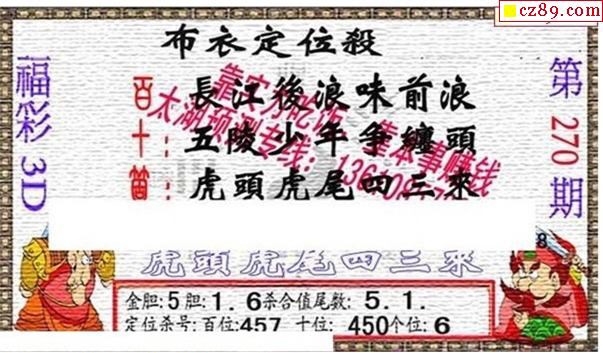 cz89.com
布衣定位殺
福彩3D
第270期
百:長江後浪味前浪
十:五陵少年爭纏頭
個:虎頭虎尾四三來
靠实力吃饭 靠本事赚钱
太湖预测专线:13
8
虎頭虎尾四三來
金胆:5胆:1.6杀合值尾数:5.1.
定位杀号:百位:457 十位:450个位:6